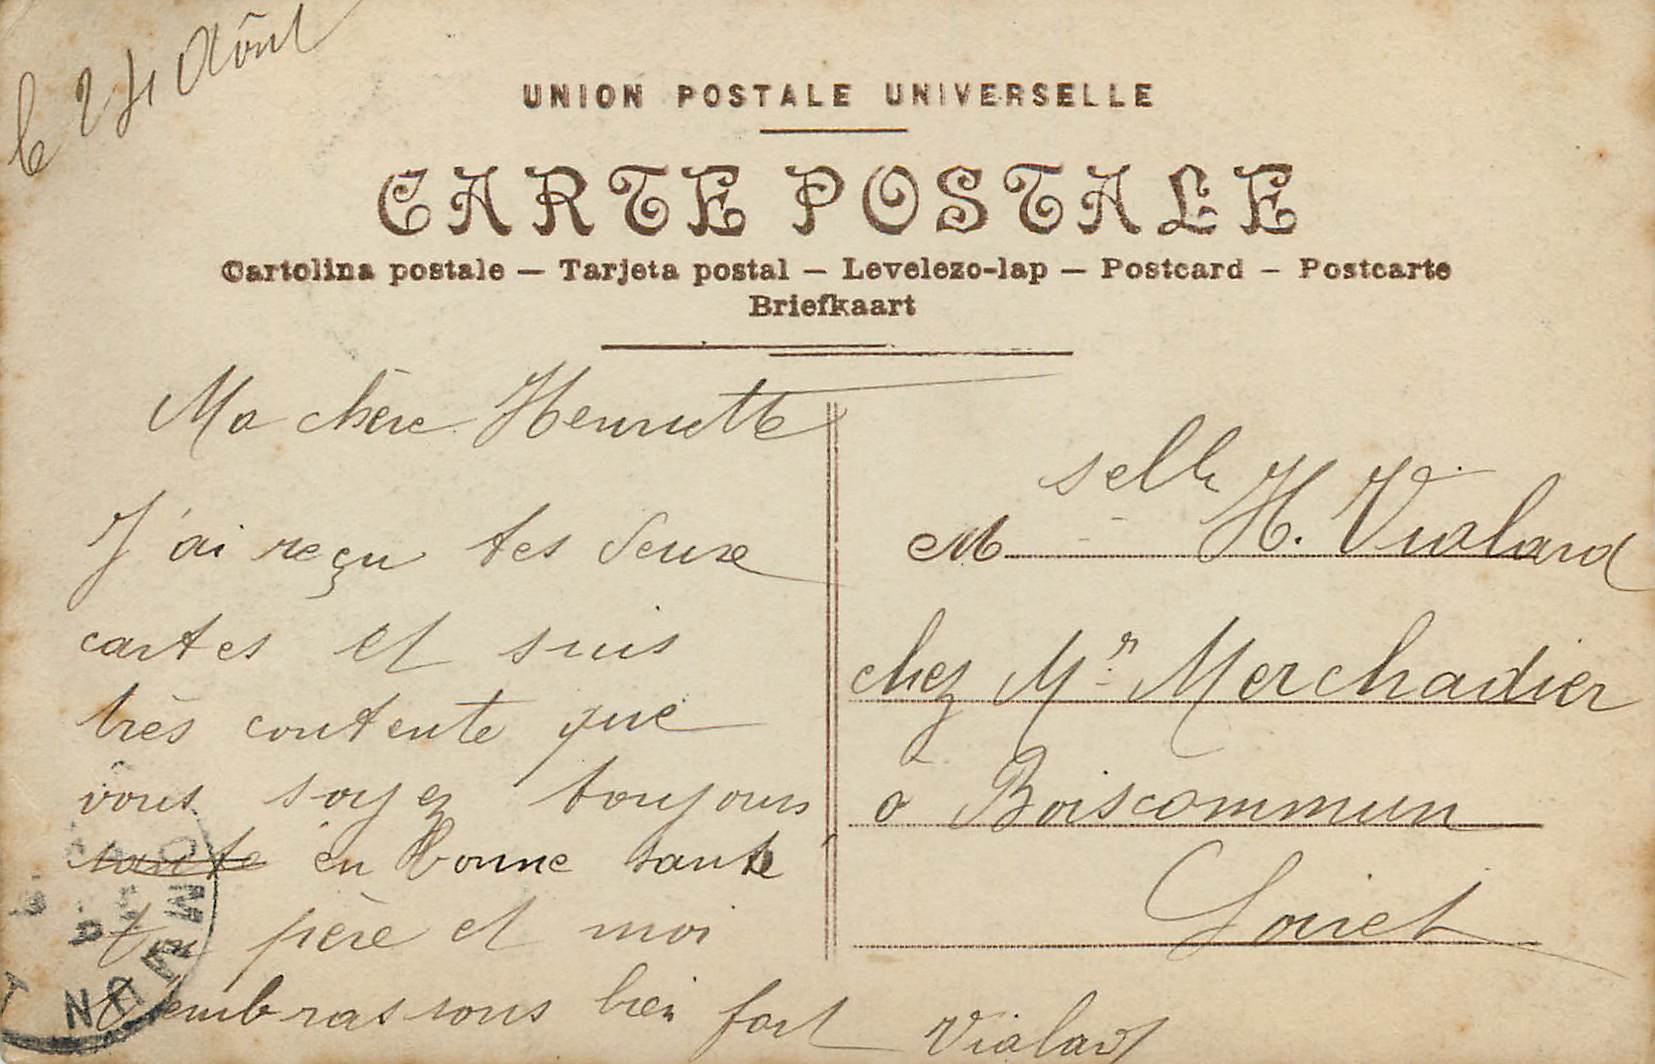 le 24 Août
UNION POSTALE UNIVERSELLE
CARTE POSTALE
Cartolina postale — Tarjeta postal — Levelezo-lap — Postcard — Postcarte
Briefkaart
Ma chère Henriette
J'ai reçu tes deux
cartes et suis
très contente que
vous soyez toujours
sante en bonne sante
Ton père et moi
t'embrassons bien fort
Vialard
M selle H. Vialard
chez Mr Merchadier
a Boiscommun
Loiret